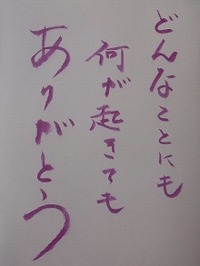 どんなことにも
何が起きても
ありがとう